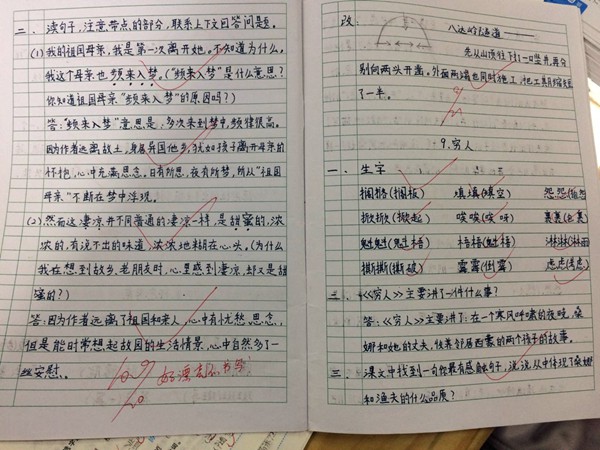 二、读句子，注意带点的部分，联系上下文回答问题。
(1)我的祖国母亲，我是第一次离开她。不知道为什么，
我这个母亲也频来入梦。（“频来入梦”是什么意思？
你知道祖国母亲“频来入梦”的原因吗？）
答：“频来入梦”意思是：多次来到梦中，频律很高。
因为作者远离故土，身居异国他乡，犹如孩子离开母亲的
怀抱，心中充满思念，日有所思，夜有所梦，所以“祖国
母亲”不断在梦中浮现。
(2)然而这凄凉并不同普通的凄凉一样，是甜蜜的，浓
浓的，有说不出的味道，浓浓地糊在心头。（为什么
我在想到故乡，老朋友时，心里感到凄凉，却又是甜
蜜的？）
答：因为作者远离了祖国和亲人，心中有忧愁、思念，
但是能时常想起故国的生活情景，心中自然多了一
丝安慰。
好漂亮的书写！
改：
八达岭隧道——
先从山顶往下打一口竖井，再分
别向两头开凿。外面两端也同时施工，把工期缩短
了一半。
9.穷人
一、生字
搁搁(搁板) 填填(填空) 怨怨
掀掀(掀起) 唉唉(唉呀) 裹裹
魁魁(魁梧) 梧梧(魁梧) 淋淋
撕撕(撕破) 霉霉(倒霉) 虑虑
二、《穷人》主要讲了一件什么事？
答：《穷人》主要讲了：在一个寒风呼啸的夜晚，桑
娜和她的丈夫，收养邻居西蒙的两个孩子的故事。
三、课文中找到一句你最有感触句子，说说从中体现了桑娜
和渔夫的什么品质？